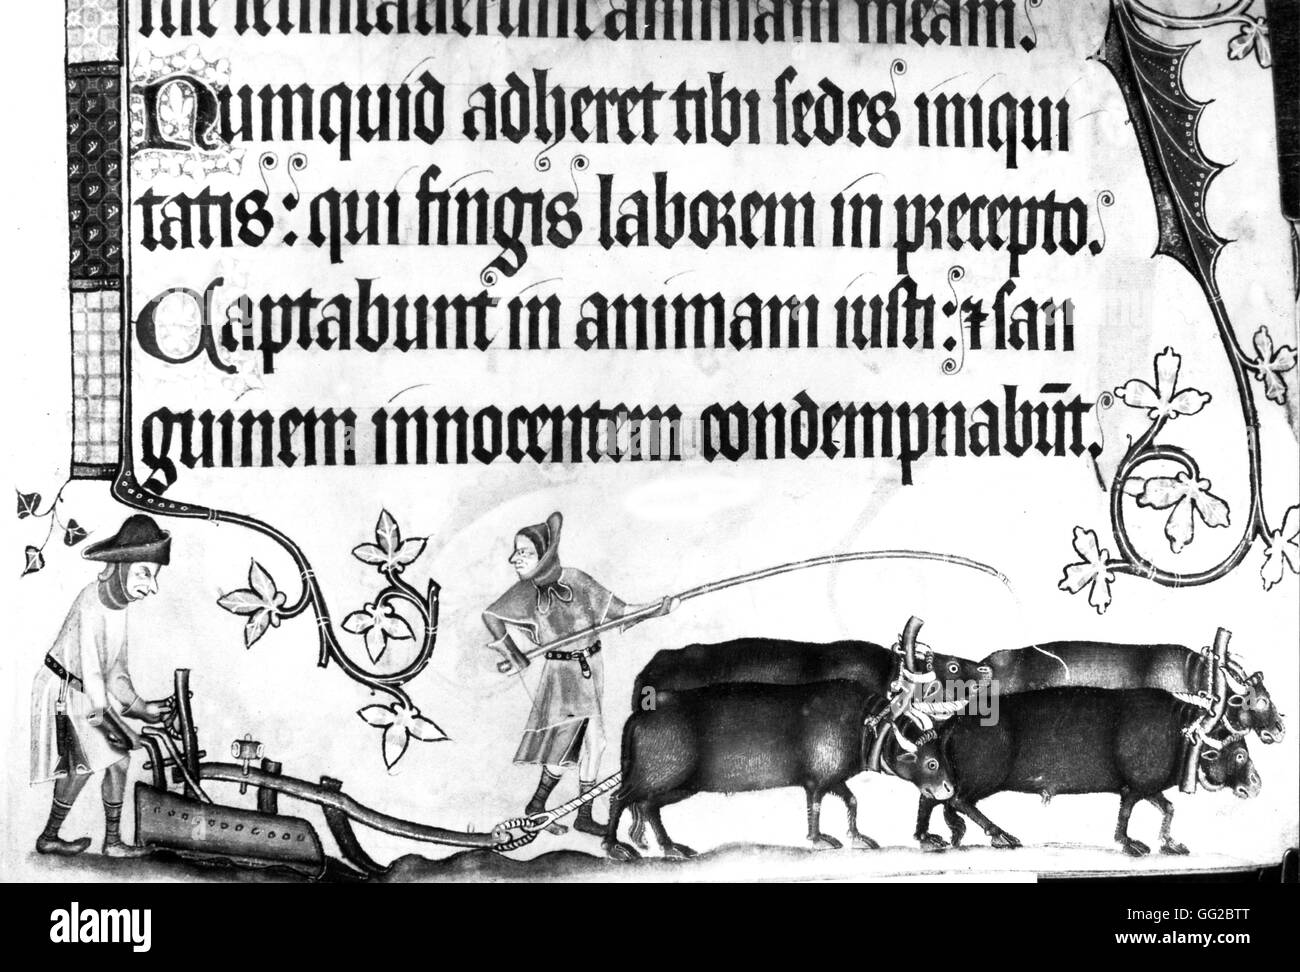 me remittatierunt animam meam.
Numquid adheret tibi sedes iniqui
tatis: qui fingis laborem in precepto.
Captabunt in animam iusti: ⁊ san
guinem innocentem condempnabūt.
alamy stock photo
alamy
GG2BTT
www.alamy.com